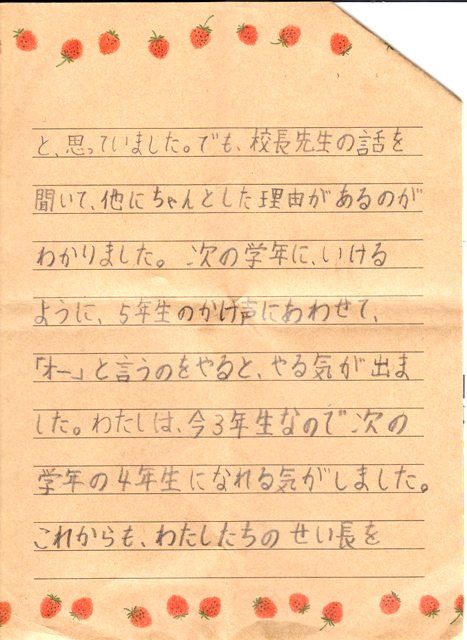 と、思っていました。でも、校長先生の話を
聞いて、他にちゃんとした理由があるのが
わかりました。次の学年に、いける
ように、5年生のかけ声にあわせて、
「オー」と言うのをやると、やる気が出ま
した。わたしは、今3年生なので次の
学年の4年生になれる気がしました。
これからも、わたしたちのせい長を